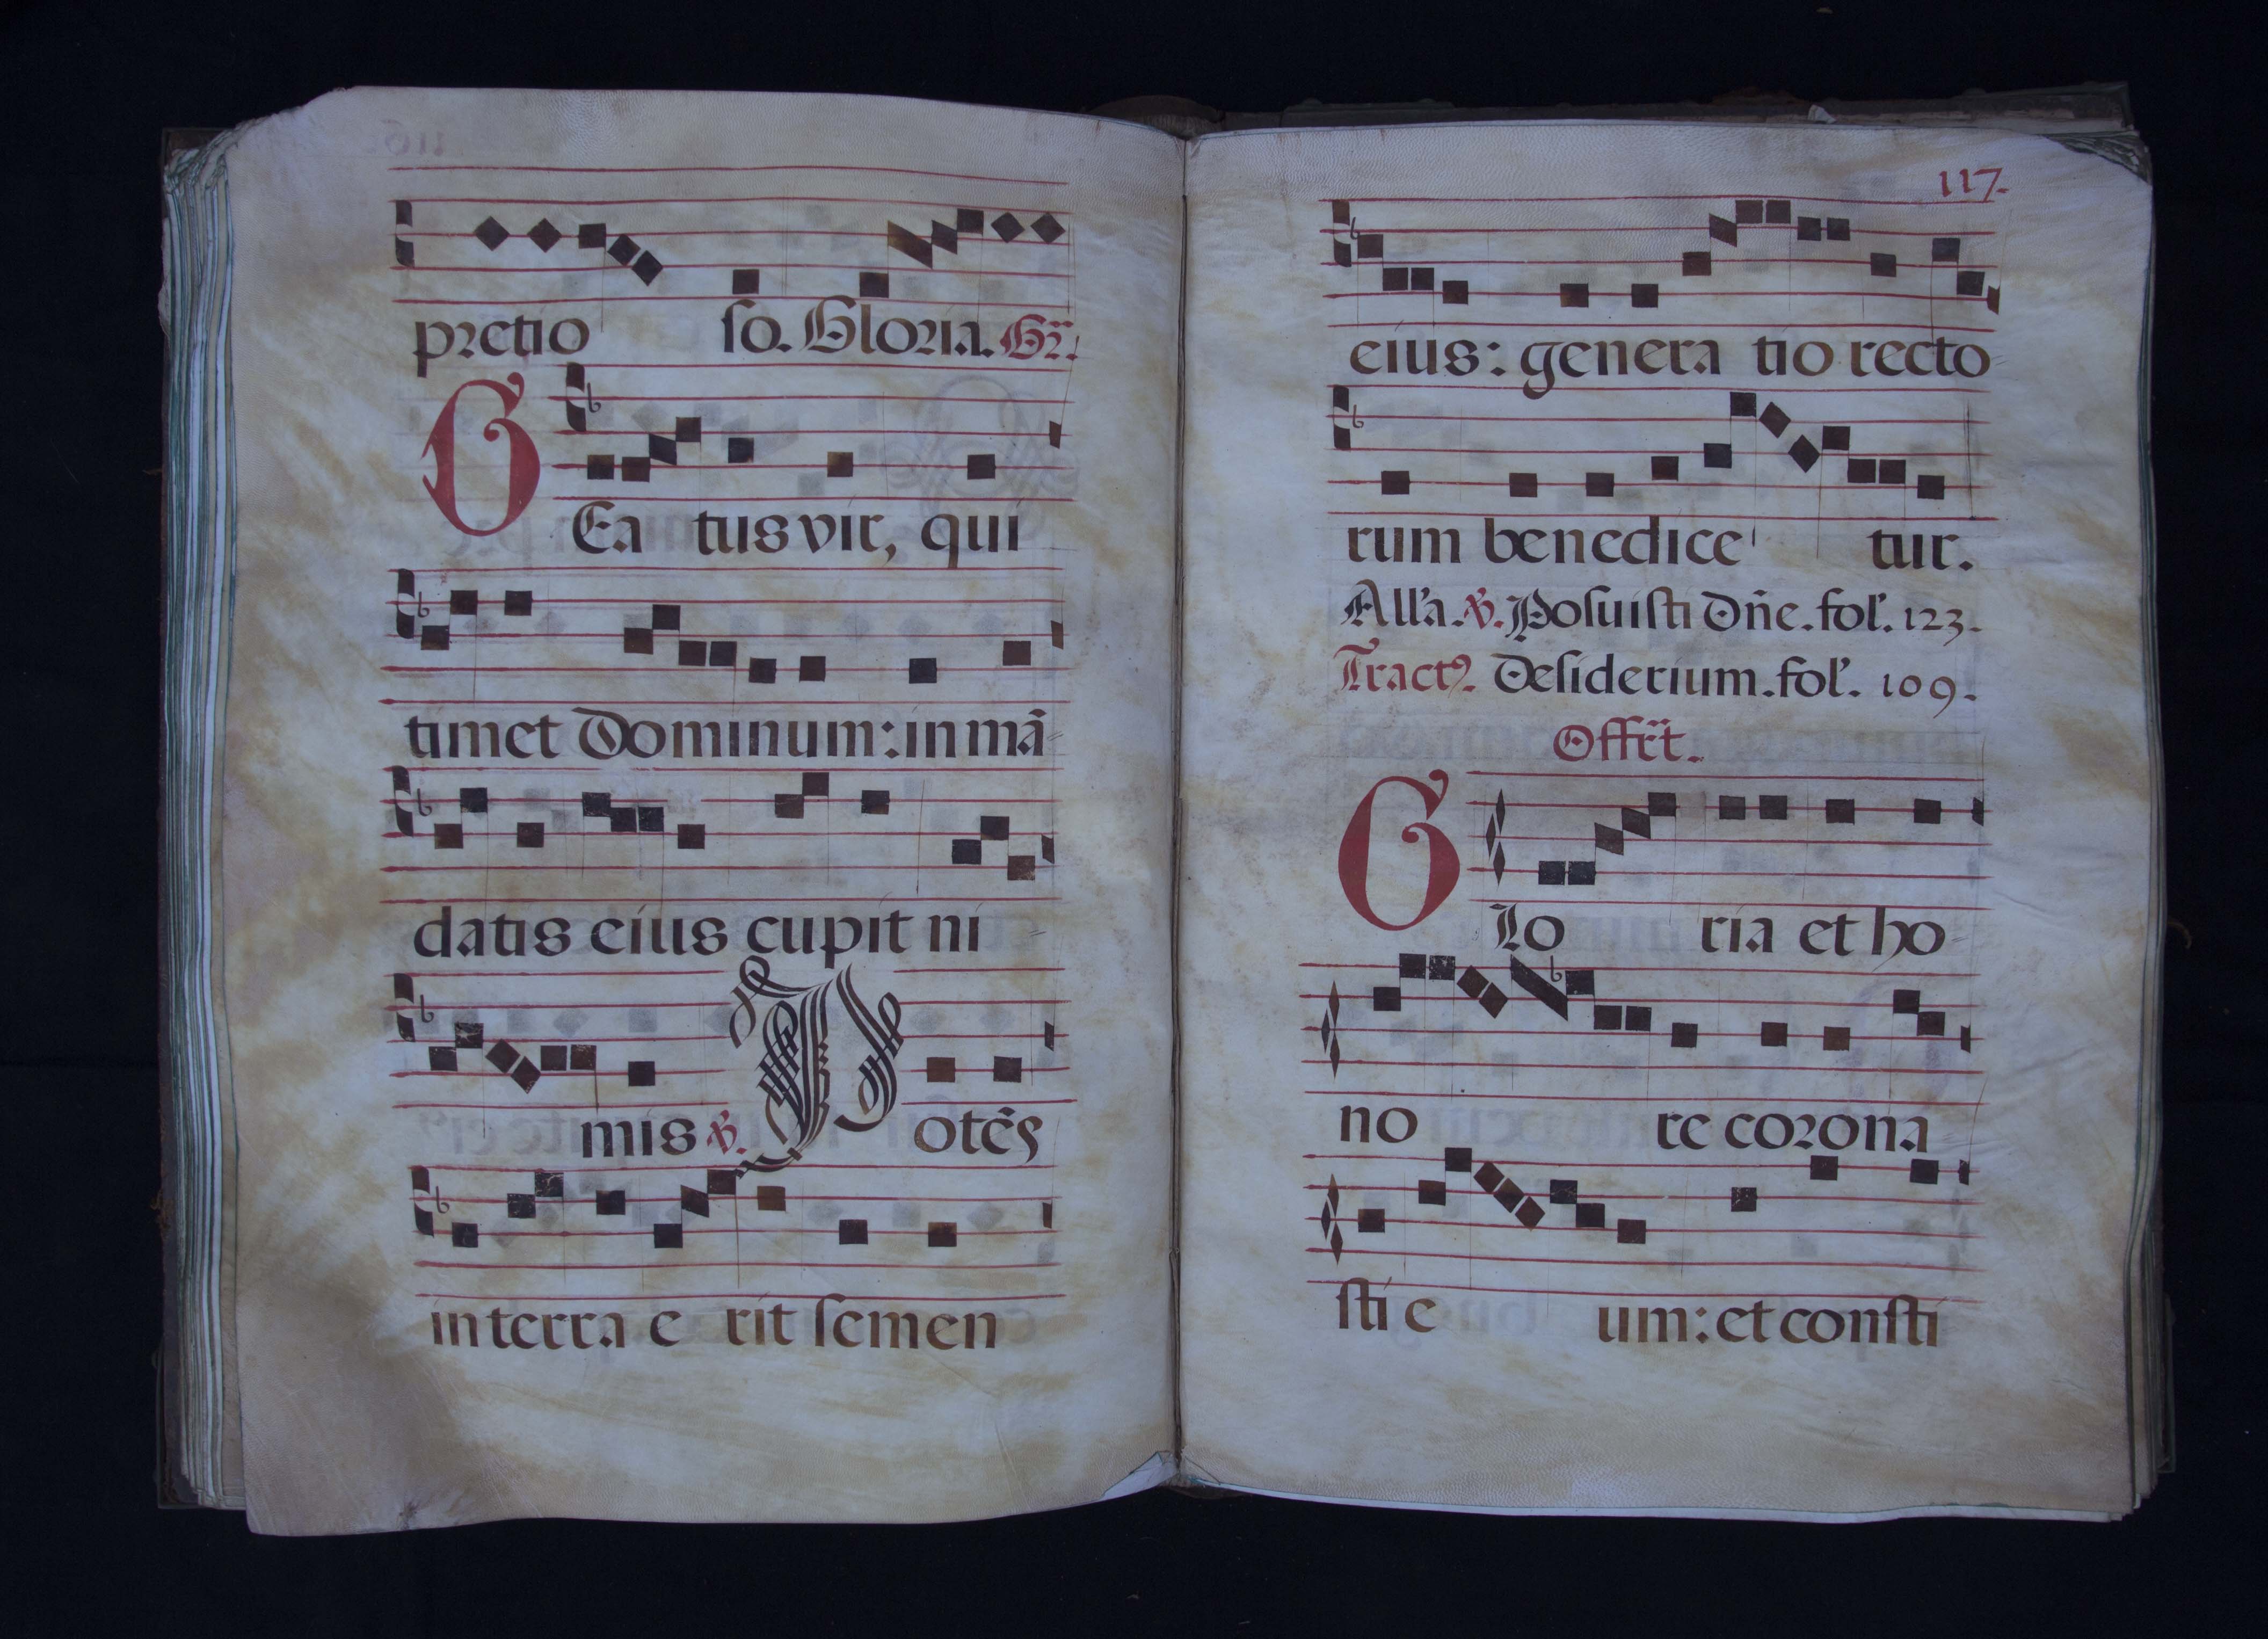 pretio so. Gloria. Gr̃.
BEa tus vir, qui
timet Dominum: in mã
datis eius cupit ni
mis ℣. Potẽs
in terra e rit semen
117.
eius: genera tio recto
rum benedice tur.
All'a. ℣. Posuisti Dñe. fol'. 123.
Tractꝰ. Desiderium. fol'. 109.
Offr̃t.
Glo ria et ho
no re corona
sti e um: et consti